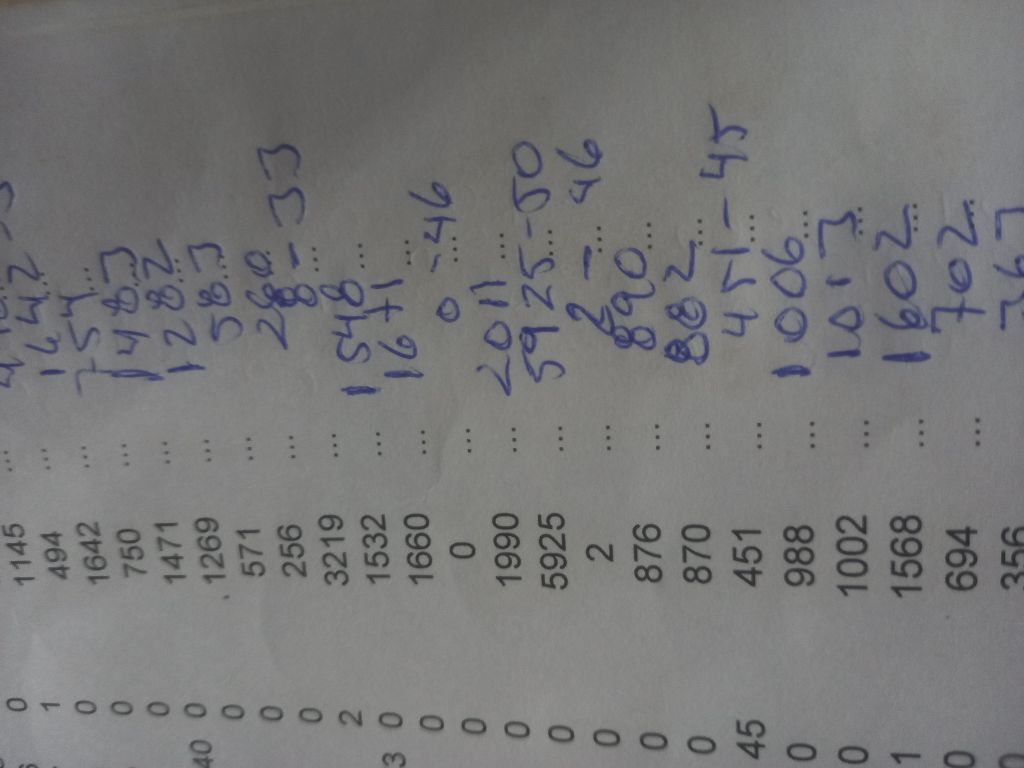 1 1145 ...
0 494 ...
0 1642 ... 1642 ...
0 750 ... 754 ...
40 0 1471 ... 1483 ...
0 1269 ... 1282 ...
0 571 ... 583 ...
0 256 ... 260 ...
2 3219 ... 8 - 33 ...
3 0 1532 ... 1548 ...
0 1660 ... 1671 ...
0 0 ... 0 - 46 ...
0 1990 ... 2011 ...
0 5925 ... 5925 - 50 ...
0 2 ... 2 - 46 ...
0 876 ... 890 ...
0 870 ... 882 ...
45 451 ... 451 - 45 ...
0 988 ... 1006 ...
0 1002 ... 1017 ...
1 1568 ... 1602 ...
0 694 ... 702 ...
0 356 367